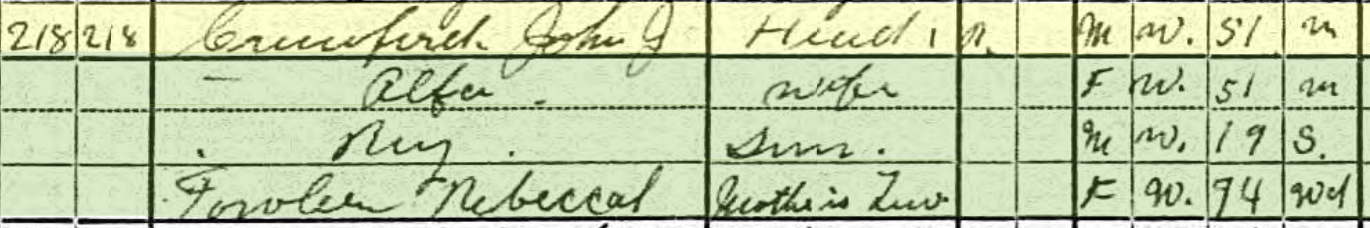 218 218 Crawford John J Head 1 R. M W. 51 M
Alfa. Wife F W. 51 M
Ray. Son. M W. 19 S.
Rebecca Mother in Law F W. 74 Wd